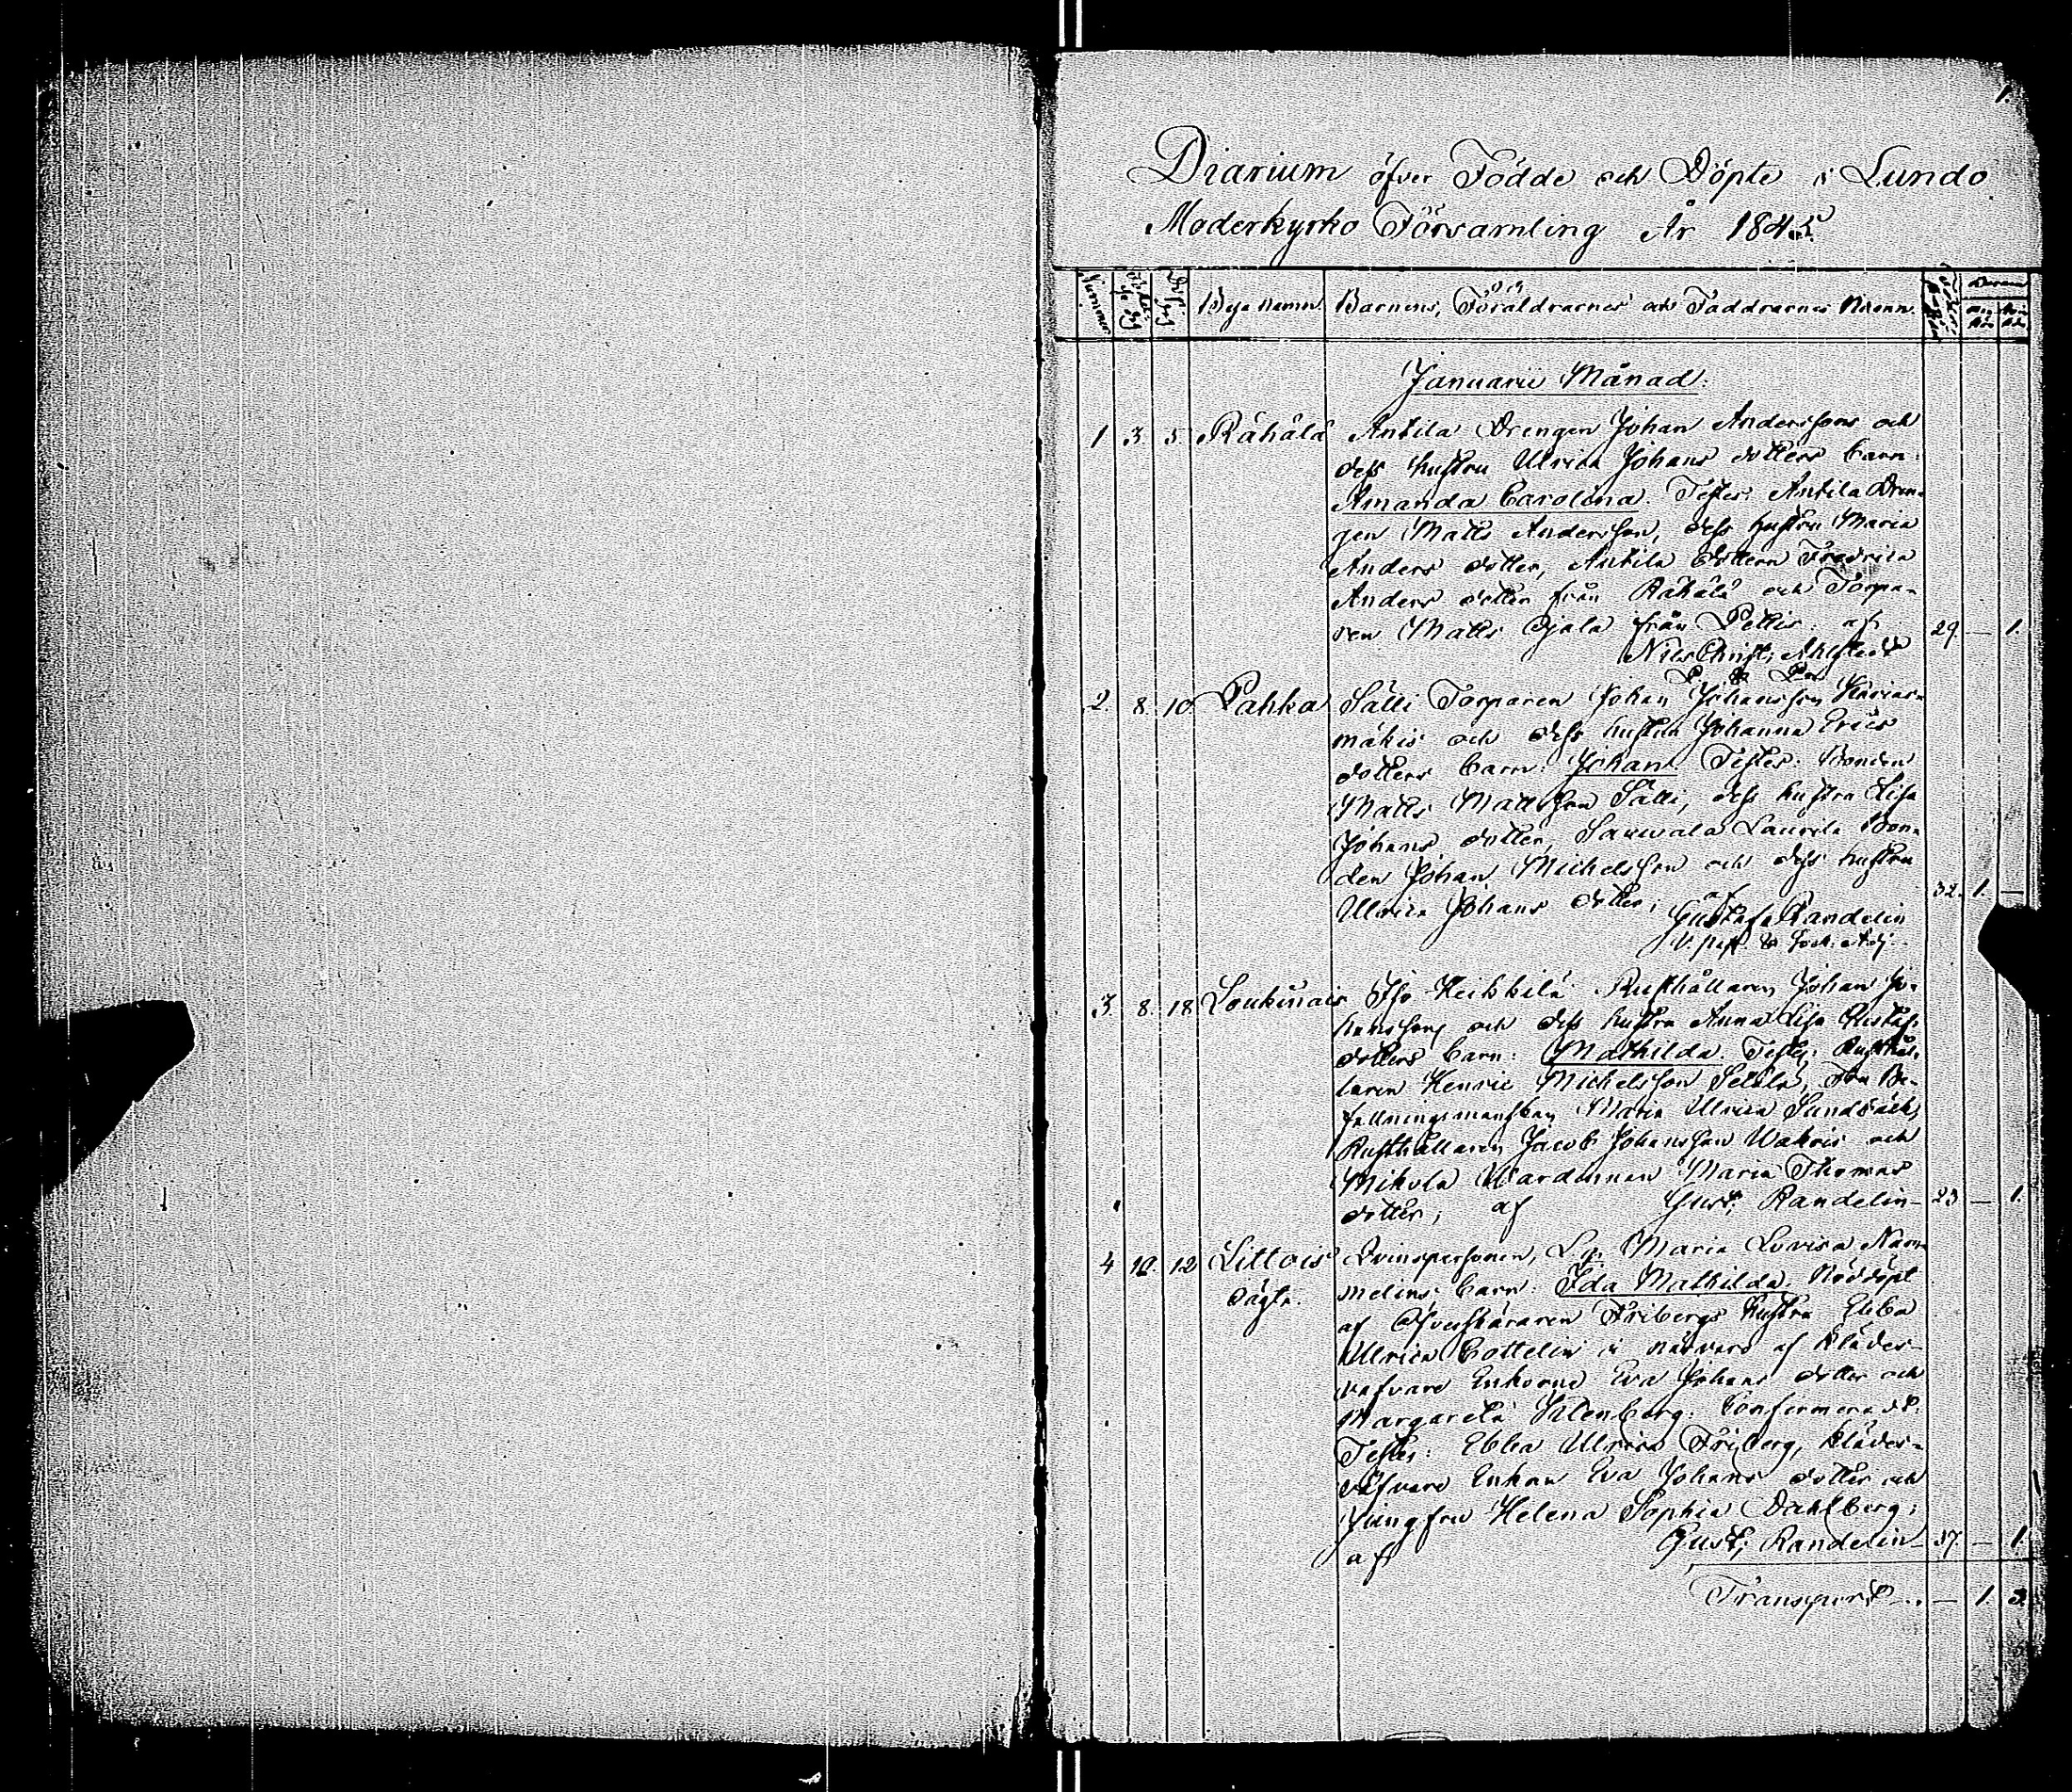 1.
Diarium öfver Födde och Döpte i Lundo
Moderkyrko Församling År 1845
Bya namn. Barnens, Föräldrarnes och Faddrarnes Namn.
Januarii Månad.
1 3. 5. Rähälä Antila Drengen Johan Anderssons och
dess hustru Ulrica Johans dotters barn:
Amanda Carolina. Testes: Antila Dren-
gen Matts Andersson, dess hustru Maria
Anders dotter, Antila dottern Fredrica
Anders dotter från Rähälä och Torpa-
ren Matts Ojala från Pettis: af 29. — 1.
Nils Christ; Ahlstedt
2. 8. 10. Pahka Sälli Torparen Johan Johansson
mäkis och dess hustru Johanna Erics
dotters barn: Johan. Testes: Bonden
Matts Mattsson Sälli, dess hustru Lisa
Johans dotter, Saukala Laurila Bon-
den Johan Michelsson och dess hustru
Ulrica Johans dotter; af 32. 1. —
Gustaf Randelin
V. past. & Sock. Adj.
3. 8. 18 Loukinais Iso-Heikkilä Rusthållaren Johan Jo-
hanssons och dess hustru Anna Lisa Gustafs
dotters barn: Mathilda. Testes: Rusthål-
laren Henric Michelsson Setälä, Be-
fallningsmanskan Maria Ulrica Sundbäck,
Rusthållaren Jacob Johansson Wakois och
Mikola Wärdinnan Maria Thomas
dotter; af Gust; Randelin — 23 — 1.
4 10. 12 Littois Qvinspersonen, Maria Lovisa
oägta. melins barn: Ida Mathilda. Nöddöpt
af Öfverskäraren Fribergs hustru Ebba
Ulrica Cottelin i närvaro af Klädes-
väfvare Enkorna Eva Johans dotter och
Margareta Silenberg: Confirmeradt.
Testes: Ebba Ulrica Friberg, Klädes-
väfvare Enkan Eva Johans dotter och
Jungfru Helena Sophia Dahlberg;
af Gust; Randelin — 37. — 1.
Transport — . . — 1. 3.